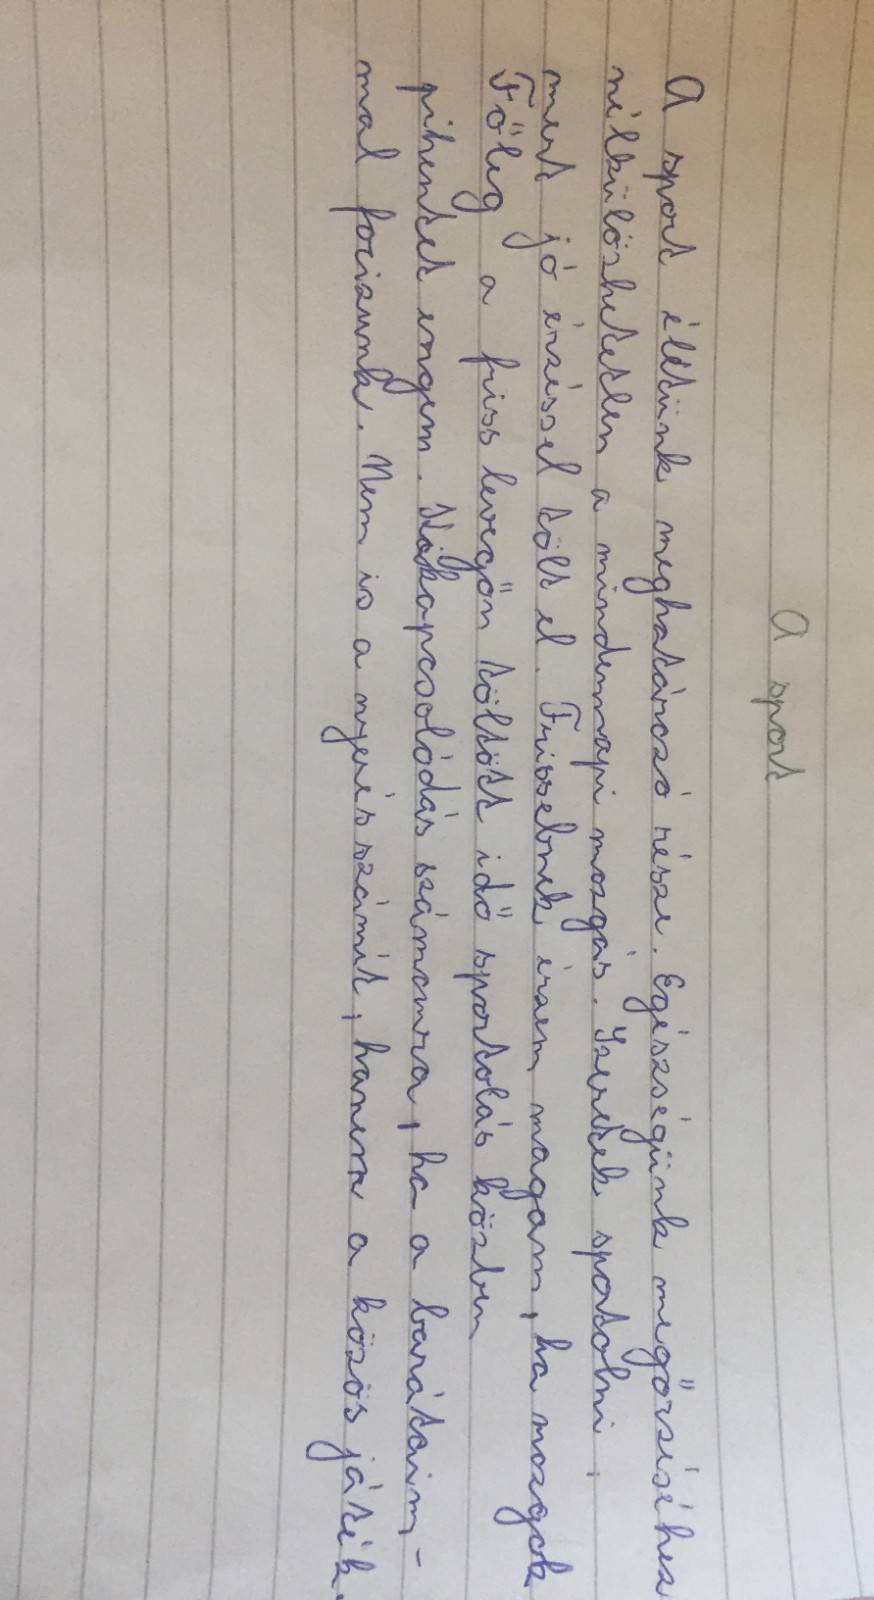 A sport
A sport életünk meghatározó része. Egészségünk megőrzéséhez
nélkülözhetetlen a mindennapi mozgás. Szeretek spotolni,
mert jó érzéssel tölt el. Frissebnek érzem magam, ha mozgok
Főleg a friss levegőn töltött idő sportolás közben
pihentet engem. Kikapcsolódás számomra, ha a barátaim-
mal focizunk. Nem is a nyerés számít, hanem a közös játék.